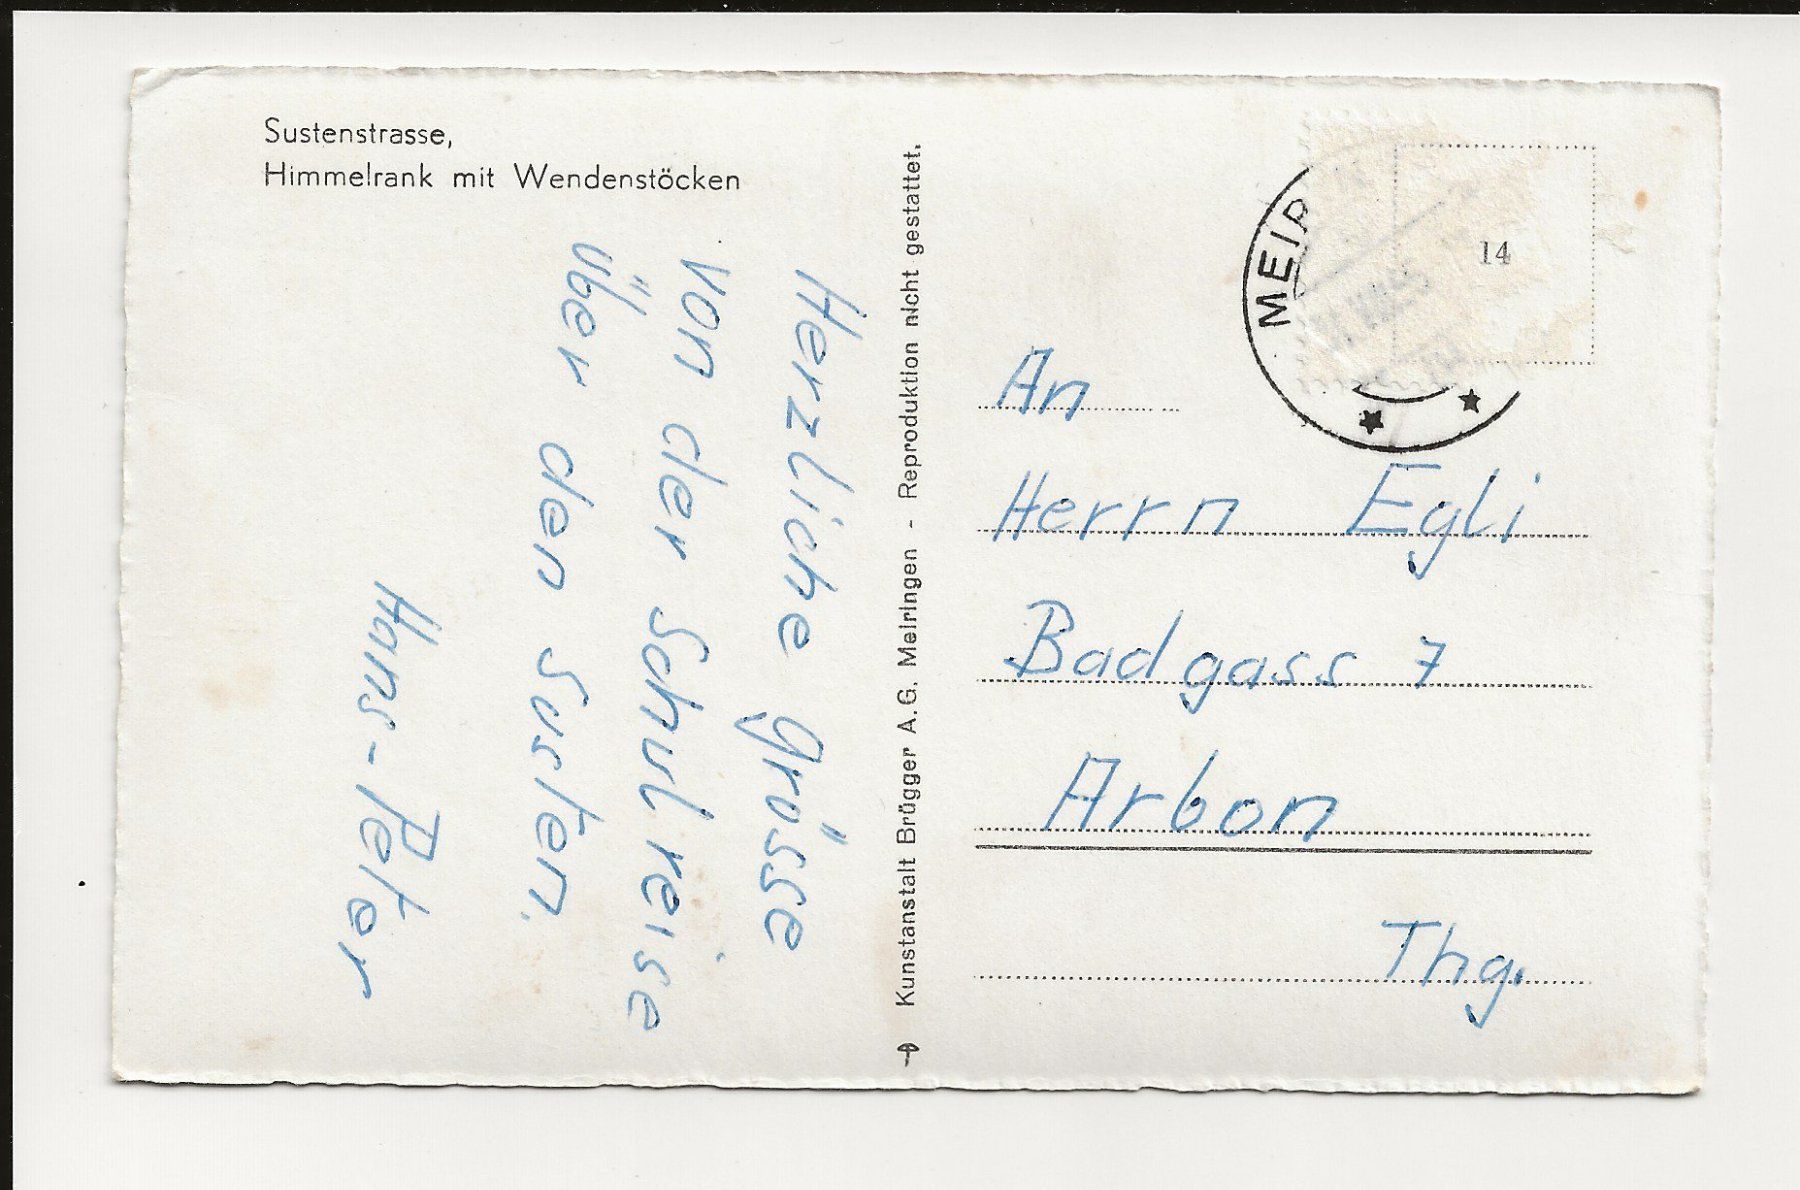 Sustenstrasse,
Himmelrank mit Wendenstöcken
Herzliche Grüsse
von der Schulreise
über den Susten.
Hans-Peter
Kunstanstalt Brügger A.G. Meiringen - Reproduktion nicht gestattet.
MEIR
14
An
Herrn Egli
Badgass 7
Arbon
Thg.